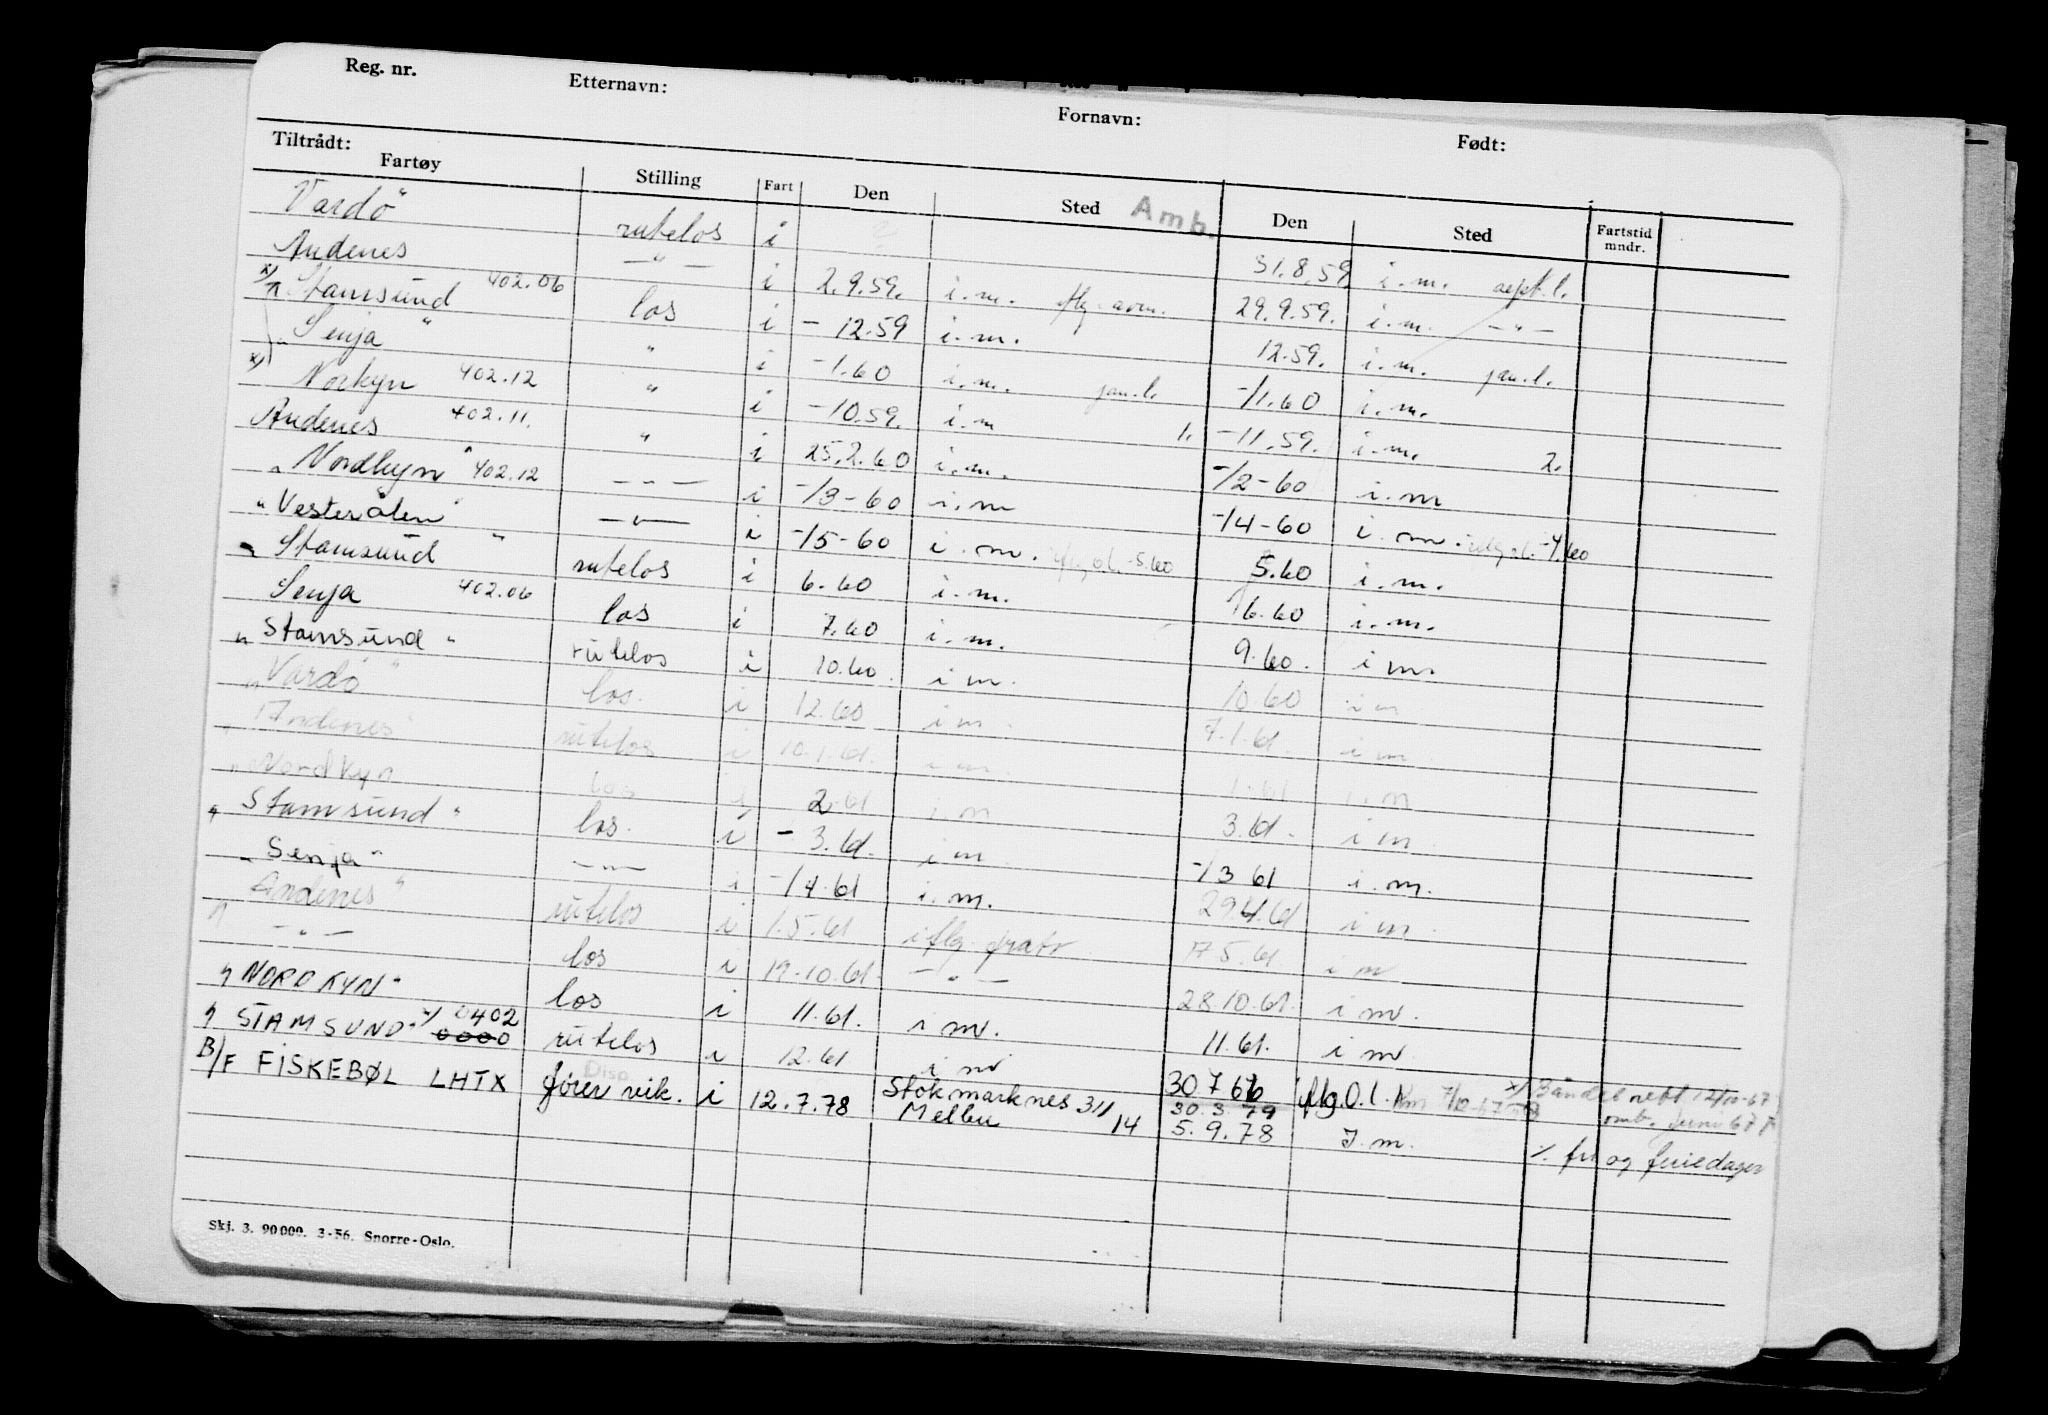 Reg. nr. Etternavn: Fornavn: Født:
Tiltrådt:
Fartøy Stilling Fart Den Sted Amb. Den Sted Fartstid mndr.
Vardö" rutelos i 31.8.59 i.m. sept.l.
Andenes —"— i 2.9.59. i.m. 29.9.59. i.m. —"—
x) "Stamsund 402.06 los i - 12.59 i.m. 12.59. i.m. jan.l.
"Senja " " i -1.60 i.m. jan.l. -/1.60 i.m.
x) Norkyn 402.12 " i -10.59. i.m 1. -11.59. i.m. 2.
Andenes 402.11. " i 25.2.60 i.m. -/2-60 i.m
"Nordkyn" 402.12 —"— i -/3-60 i.m -/4-60 i.m. -4.60
"Vesterålen" —"— i -/5-60 i.m. -5.60 5.60 i.m.
"Stamsund " rutelos i 6.60 i.m. 6.60 i.m.
Senja 402.06 los i 7.60 i.m. 9.60. i m.
"Stamsund" rutelos i 10.60. i m. 10.60 i m
"Vardö" los. i 12.60 i m. 7.1.61. i m
"Andenes" rutelos i 10.1.61. i m. 1.61 i.m
"Nordkyn los i 2.61 i m 3.61. i m
"Stamsund" los. i - 3.61. i m -/3 61 i.m.
"Senja" —"— i -/4.61 i.m. 29.4.61 i m.
"Andenes" rutelos i 1.5.61 i 17 5.61 i m
—"— los i 19.10.61. —"— 28 10.61. i m.
"NORDKYN" los i 11.61. i m. 11.61. i m
"STAMSUND" x) 0402 0000 rutelos i 12.61 i m 30 7 66 i flg.O.l.
B/F FISKEBØL LHTX Disp. fører vik. i 12.7.78 Stokmarknes 31/ 30.3.79
Melbu 14 5.9.78 I.m. ./. fri og feriedager
Skj. 3. 90 000. 3-56. Snorre-Oslo.